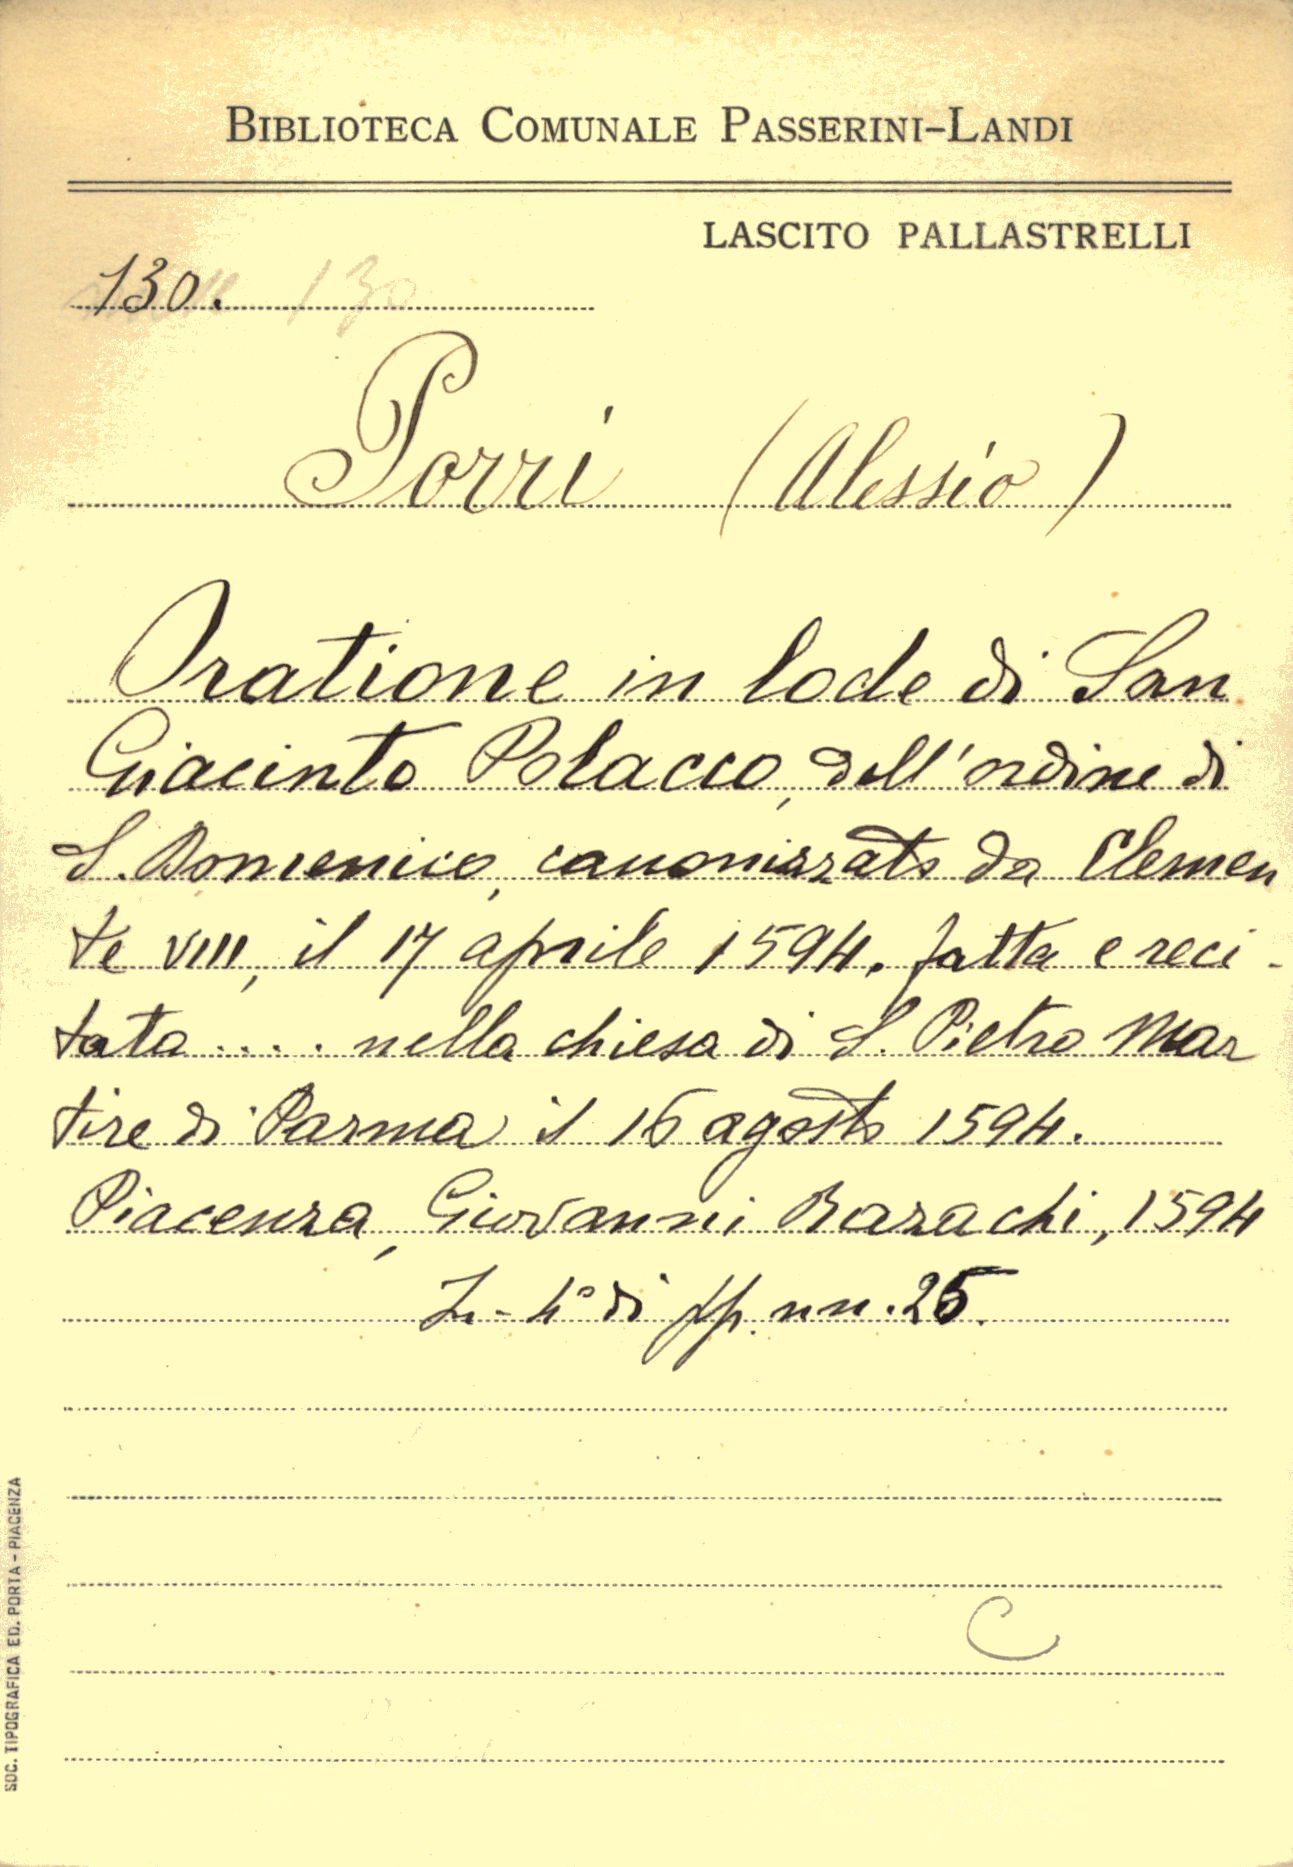 BIBLIOTECA COMUNALE PASSERINI-LANDI
LASCITO PALLASTRELLI
130. 130
Porri (Alessio)
Oratione in lode di San
Giacinto Polacco, dell'ordine di
S. Domenico, canonizzato da Clemen
te VIII, il 17 aprile 1594. fatta e reci-
tata .... nella chiesa di S. Pietro Mar
tire di Parma il 16 agosto 1594.
Piacenza, Giovanni Bazachi, 1594
In-4° di pp. nn. 25.
C
SOC. TIPOGRAFICA ED. PORTA - PIACENZA